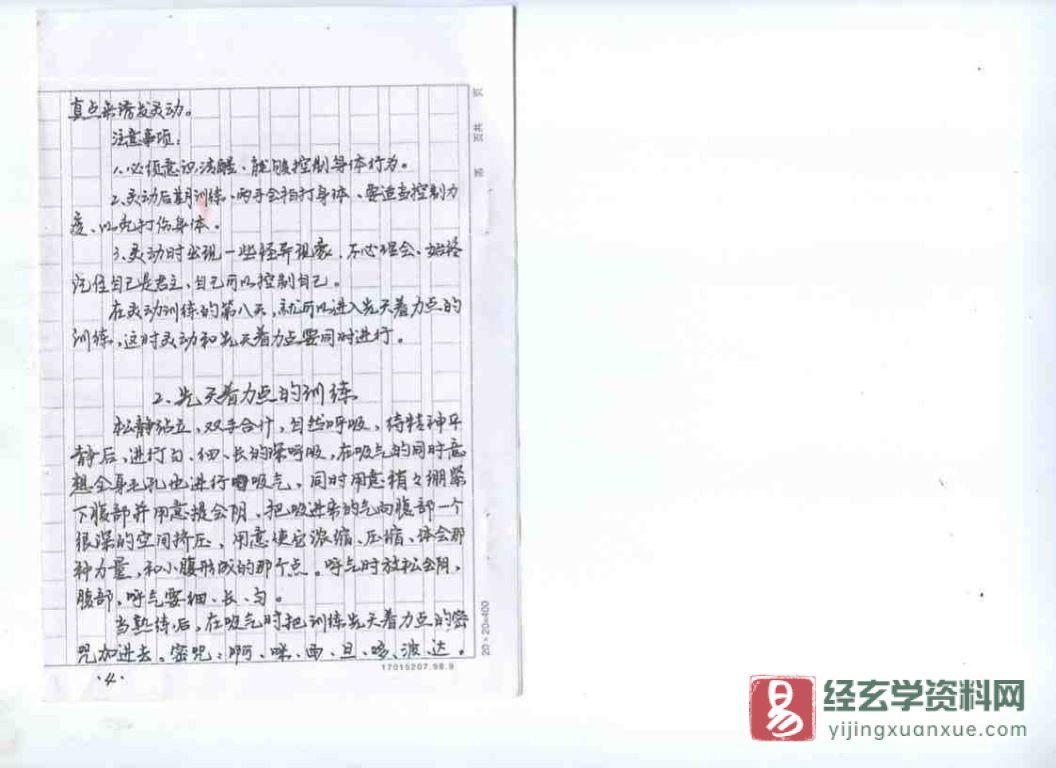 真点来诱发灵动。
注意事项:
1、必须意识清醒、能够控制身体行为。
2、灵动后期训练、两手会拍打身体、要适当控制力
度、以免打伤身体。
3、灵动时出现一些怪异现象、不必理会、始终
记住自己是君主、自己可以控制自己。
在灵动训练的第八天,就可以进入先天着力点的
训练,这时灵动和先天着力点要同时进行。
2、先天着力点的训练
松静站立,双手合十,自然呼吸,待精神平
静后、进行匀、细、长的深呼吸,在吸气的同时意
想全身毛孔也进行吸气、同时用意稍々绷紧
下腹部并用意提会阴、把吸进来的气向腹部一个
很深的空间挤压、用意使它浓缩、压缩、体会那
种力量,和小腹形成的那个点。呼气时放松会阴,
腹部,呼气要细、长、匀。
当熟练后,在吸气时把训练先天着力点的密
咒加进去。密咒:啊、咪、西、旦、哆、波、达。
·4·
17015207.98.9
20×20=400
页
第 页共
易
经玄学资料网
yijingxuanxue.com